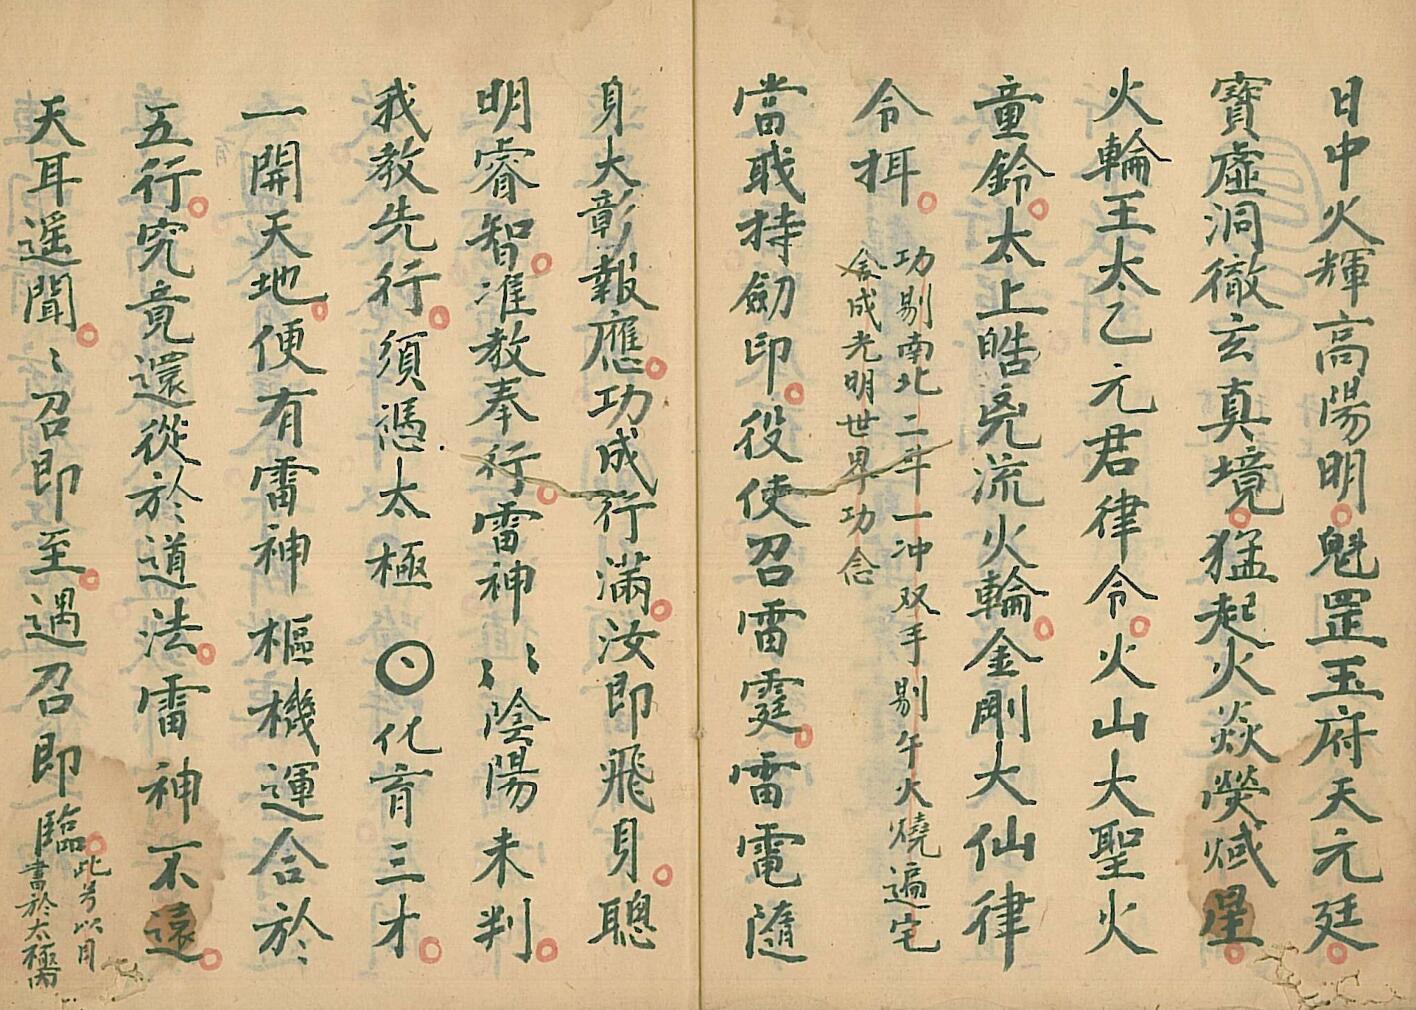 日中火輝高陽明魁罡玉府天元廷
寶虛洞徹玄真境猛起火焱熒惑星
火輪王太乙元君律令火山大聖火
童鈴太上皓兇流火輪金剛大仙律
令挕
功剔南北二斗一冲双手剔午火燒遍宅
念成光明世界功念
當職持劒印役使召雷霆雷電隨
身大彰報應功成行滿汝即飛身聰
明睿智准教奉行雷神〻〻陰陽未判
我教先行須憑太極 化育三才
一開天地便有雷神樞機運合於
五行究竟還從於道法雷神不遠
天耳遥聞〻召即至遇召即臨
此号以月
書於太極内